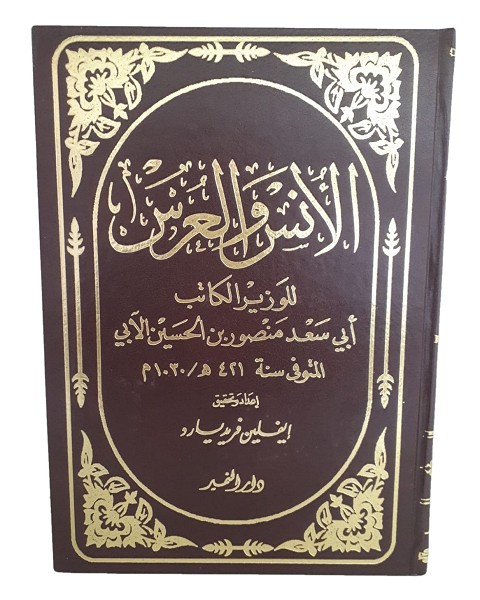 الأُنسُ وَالعُرسُ
للوزير الكاتب
أبي سَعد مَنصُور بن الحسَين الآبي
المتوفى سنة ٤٢١ هـ/١٠٣٠م
إعداد وتحقيق
إيفلين فريد يارد
دار النمير